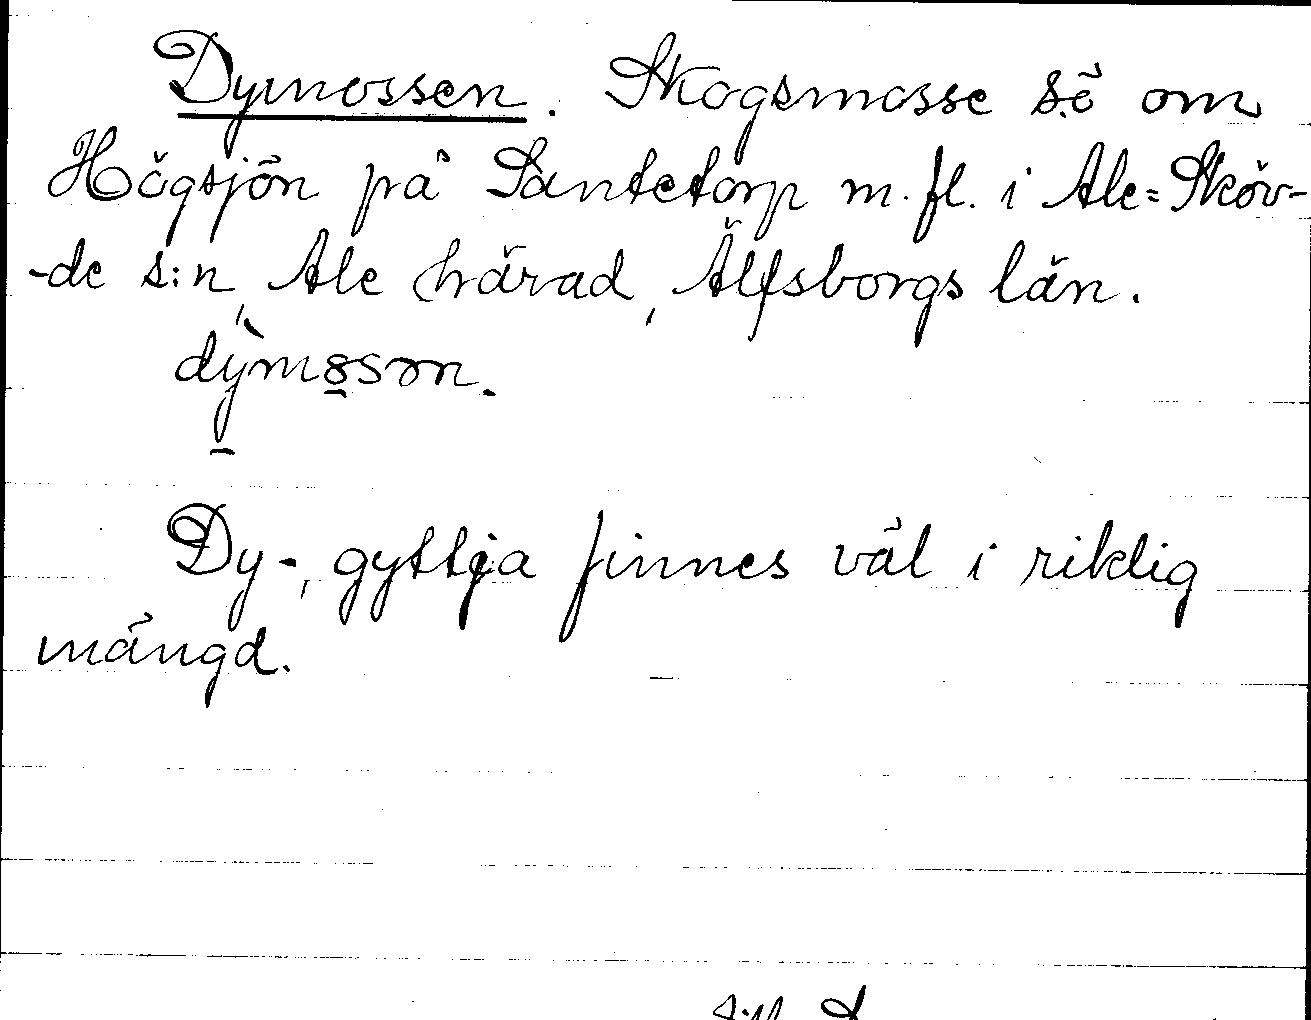 Dymossen. Skogsmosse s.ö om
Högsjön på Santetorp m. fl. i Ale=Sköv-
-de s:n, Ale härad, Älfsborgs län.
dỳmo̠sən.
Dy-, gyttja finnes väl i riklig
mängd.